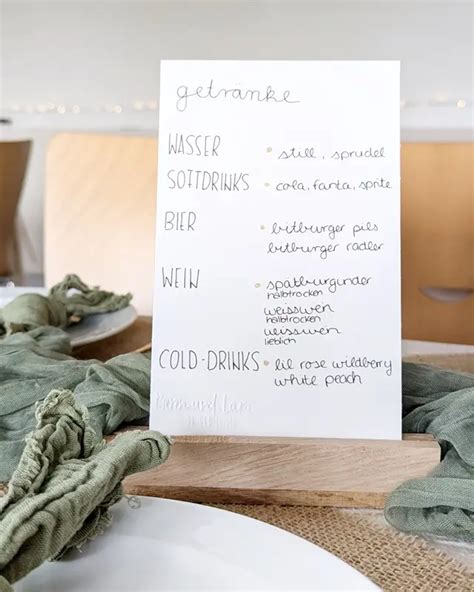 getränke
WASSER • still, sprudel
SOFTDRINKS • cola, fanta, sprite
BIER • bitburger pils
bitburger radler
WEIN • spätburgunder
halbtrocken
weisswein
halbtrocken
weisswein
lieblich
COLD-DRINKS • lil rose wildberry
white peach
und Lara